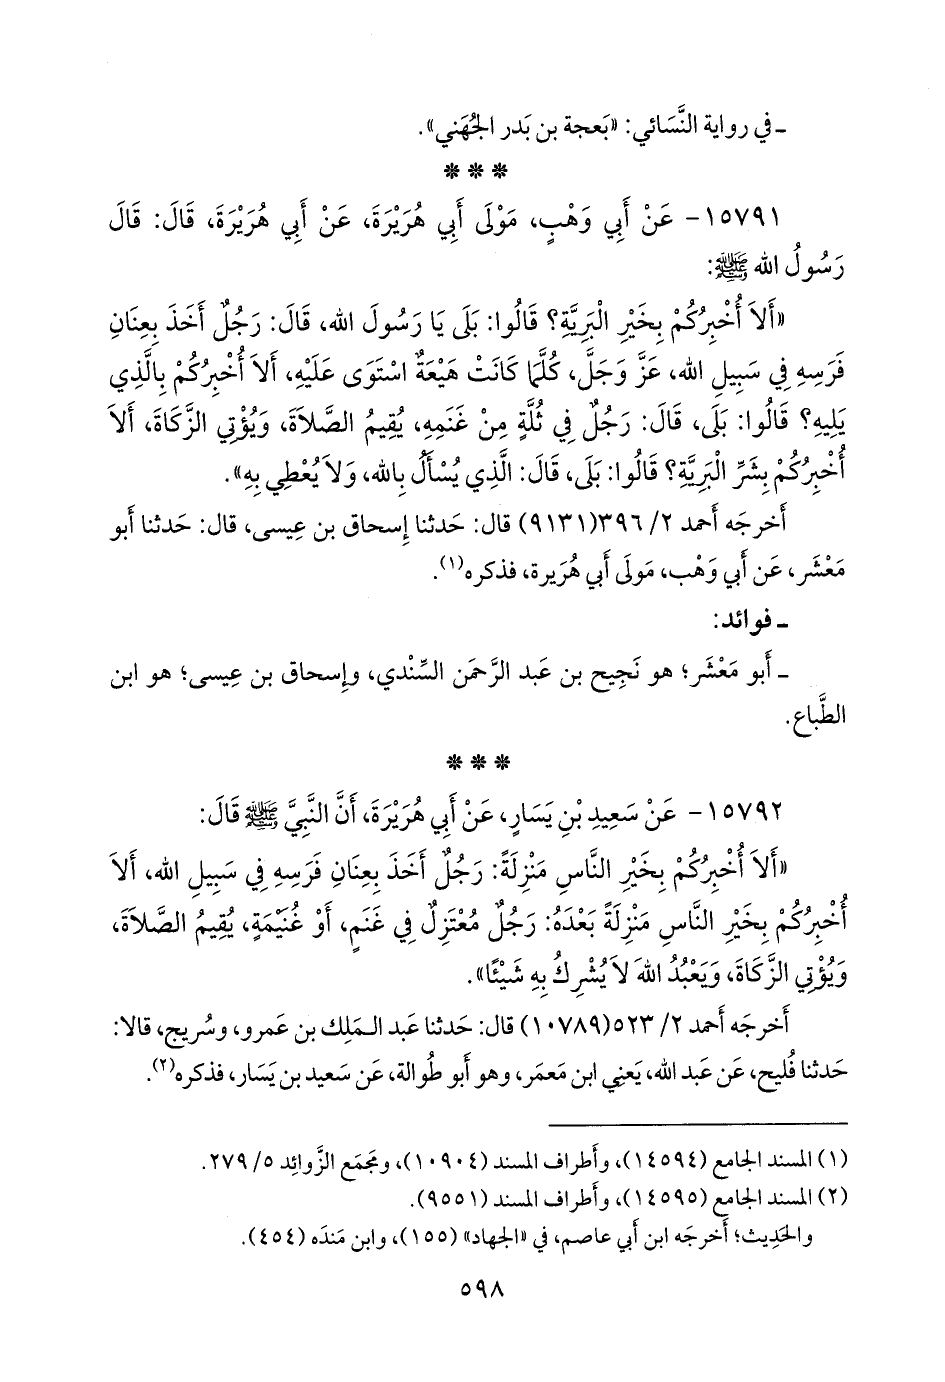 ـ في رواية النَّسَائي: «بَعجة بن بَدر الجُهَني».
* * *
١٥٧٩١- عَنْ أَبِي وَهْبٍ، مَوْلَى أَبِي هُرَيْرَةَ، عَنْ أَبِي هُرَيْرَةَ، قَالَ: قَالَ
رَسُولُ الله ﷺ:
«أَلاَ أُخْبِرُكُمْ بِخَيْرِ الْبَرِيَّةِ؟ قَالُوا: بَلَى يَا رَسُولَ الله، قَالَ: رَجُلٌ أَخَذَ بِعِنَانِ
فَرَسِهِ فِي سَبِيلِ الله، عَزَّ وَجَلَّ، كُلَّمَا كَانَتْ هَيْعَةٌ اسْتَوَى عَلَيْهِ، أَلاَ أُخْبِرُكُمْ بِالَّذِي
يَلِيهِ؟ قَالُوا: بَلَى، قَالَ: رَجُلٌ فِي ثُلَّةٍ مِنْ غَنَمِهِ، يُقِيمُ الصَّلاَةَ، وَيُؤْتِي الزَّكَاةَ، أَلاَ
أُخْبِرُكُمْ بِشَرِّ الْبَرِيَّةِ؟ قَالُوا: بَلَى، قَالَ: الَّذِي يُسْأَلُ بِالله، وَلاَ يُعْطِي بِهِ».
أَخرجَه أَحمد ٢/ ٣٩٦(٩١٣١) قال: حَدثنا إِسحاق بن عِيسى، قال: حَدثنا أَبو
مَعْشَر، عَن أَبي وَهْب، مَولَى أَبي هُرَيرة، فذكره(١).
ـ فوائد:
ـ أَبو مَعْشَر؛ هو نَجِيح بن عَبد الرَّحمَن السِّنْدي، وإِسحاق بن عِيسى؛ هو ابن
الطَّباع.
* * *
١٥٧٩٢- عَنْ سَعِيدِ بْنِ يَسَارٍ، عَنْ أَبِي هُرَيْرَةَ، أَنَّ النَّبِيَّ ﷺ قَالَ:
«أَلاَ أُخْبِرُكُمْ بِخَيْرِ النَّاسِ مَنْزِلَةً: رَجُلٌ أَخَذَ بِعِنَانِ فَرَسِهِ فِي سَبِيلِ الله، أَلاَ
أُخْبِرُكُمْ بِخَيْرِ النَّاسِ مَنْزِلَةً بَعْدَهُ: رَجُلٌ مُعْتَزِلٌ فِي غَنَمٍ، أَوْ غُنَيْمَةٍ، يُقِيمُ الصَّلاَةَ،
وَيُؤْتِي الزَّكَاةَ، وَيَعْبُدُ اللهَ لاَ يُشْرِكُ بِهِ شَيْئًا».
أَخرجَه أَحمد ٢/ ٥٢٣(١٠٧٨٩) قال: حَدثنا عَبد الـمَلِك بن عَمرو، وسُريج، قالا:
حَدثنا فُليح، عَن عَبد الله، يَعنِي ابن مَعمَر، وهو أَبو طُوالة، عَن سَعيد بن يَسَار، فذكره(٢).
(١) المسند الجامع (١٤٥٩٤)، وأَطراف المسند (١٠٩٠٤)، ومَجمَع الزَّوائِد ٥/ ٢٧٩.
(٢) المسند الجامع (١٤٥٩٥)، وأَطراف المسند (٩٥٥١).
والحَدِيث؛ أَخرجَه ابن أَبي عاصم، في «الجهاد» (١٥٥)، وابن مَندَه (٤٥٤).
٥٩٨